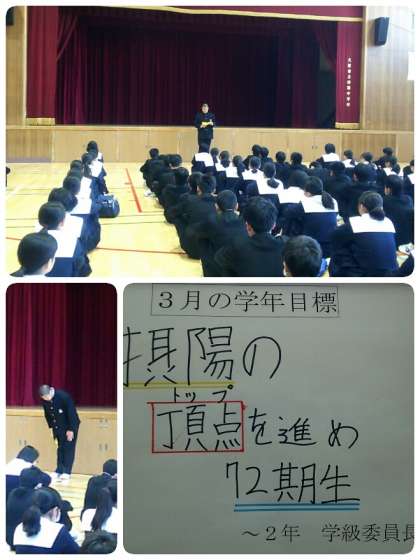 3月の学年目標
摂陽の
トップ
頂点を進め
72期生
～2年 学級委員長